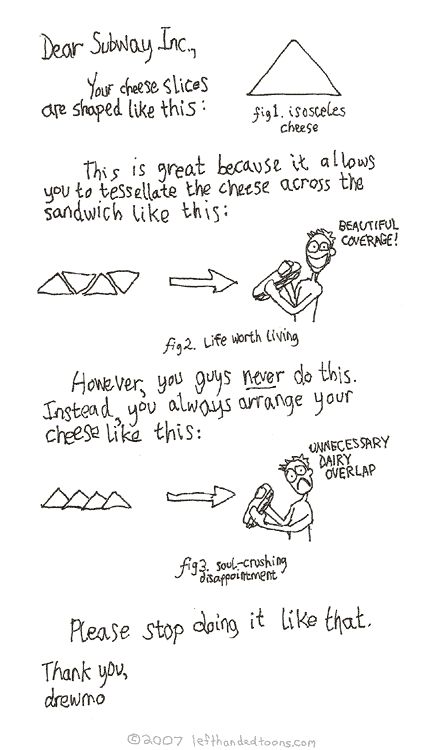 Dear Subway Inc.,
Your cheese slices
are shaped like this:
fig1. isosceles
cheese
This is great because it allows
you to tessellate the cheese across the
sandwich like this:
BEAUTIFUL
COVERAGE!
fig2. Life worth living
However, you guys never do this.
Instead, you always arrange your
cheese like this:
UNNECESSARY
DAIRY
OVERLAP
fig3. soul-crushing
disappointment
Please stop doing it like that.
Thank you,
drewmo
©2007 lefthandedtoons.com